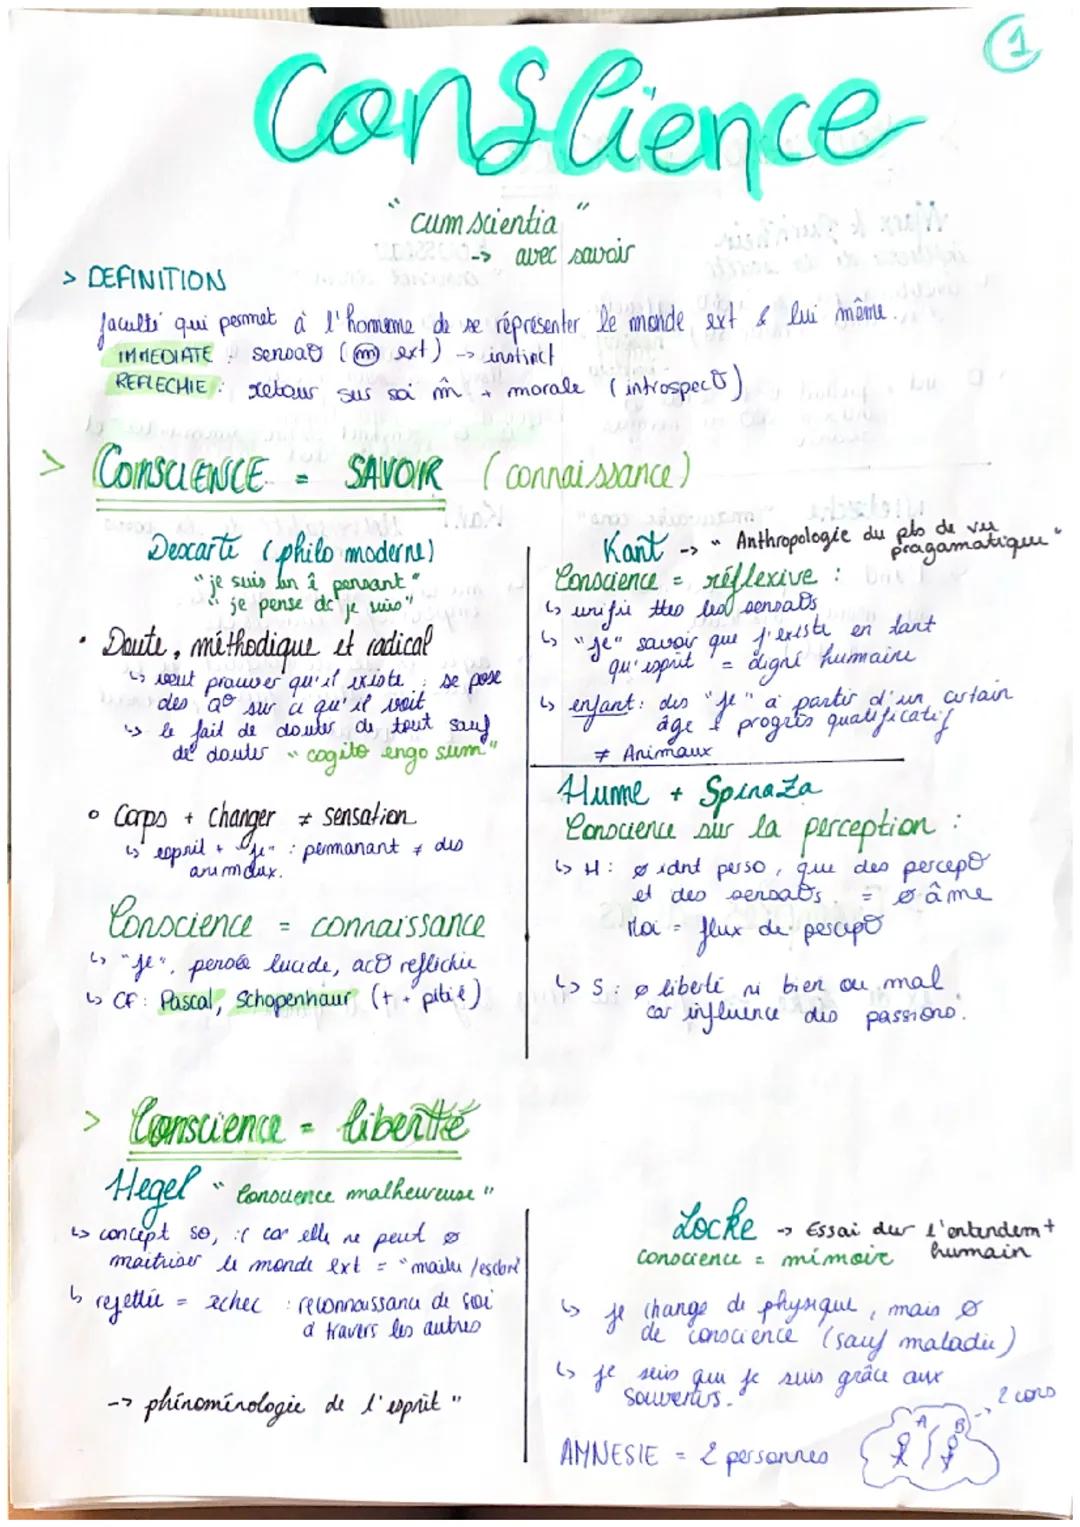 1
Conscience
"cum scientia"
-> avec savoir
> DEFINITION
faculté qui permet à l'homme de se réprésenter le monde ext & lui même.
IMMEDIATE : sensaO (m ext) -> instinct
REFLECHIE : retour sur soi m̂ + morale (introspecO)
> CONSCIENCE = SAVOIR (connaissance)
Descarte (philo moderne)
"je suis un ê pensant"
"je pense dc je suis"
• Doute, méthodique et radical
↳ veut prouver qu'il existe : se pose
des qO sur ce qu'il voit
↳ le fait de douter de tout sauf
de douter "cogito engo sum"
• Corps + changer ≠ sensation
↳ esprit + "je" : permanant ≠ des
animaux.
Conscience = connaissance
↳ "je", pensée lucide, acO reflichie
↳ CF : Pascal, Schopenhaur (t. + pitié)
Kant -> "Anthropologie du pts de vu
pragamatique"
Conscience = réflexive :
↳ unifie ttes les sensaOs
↳ "je" savoir que j'existe en tant
qu'esprit = digné humaine
↳ enfant : dis "je" à partir d'un certain
âge & progrès qualificatif
≠ Animaux
Hume + Spinoza
Conscience sur la perception :
↳ H : ø idnt perso, que des percepO
et des sensaOs. = ø âme
Moi = flux de percepO
↳ S : ø liberté ni bien ou mal
car influence des passions.
> Conscience = liberté
Hegel "Conscience malheureuse"
↳ concept so, :( car elle ne peut ø
maitriser le monde ext = "maitre/esclave
↳ rejettée = echec : reconnaissance de soi
à travers les autres
-> phénoménologie de l'esprit"
Locke -> Essai sur l'entendem+
humain
conscience = mémoire
↳ je change de physique, mais ø
de conscience (sauf maladie)
↳ je suis qui je suis grâce aux
souvenirs.
AMNESIE = 2 personnes
A B -> 2 cons